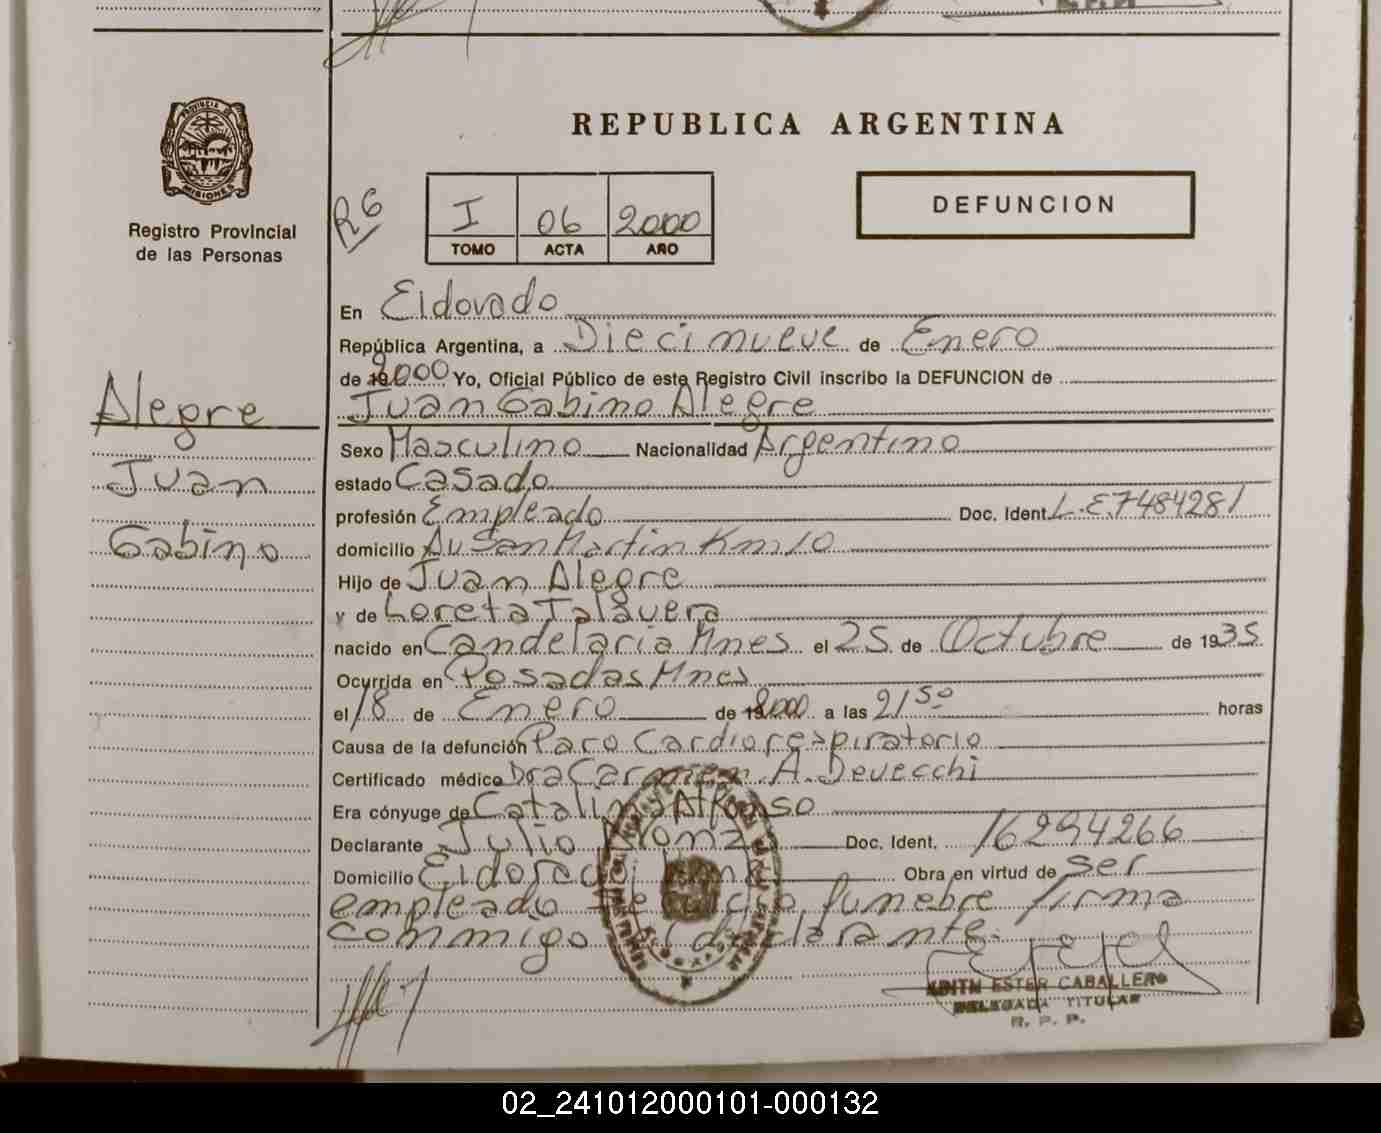 REPUBLICA ARGENTINA
PROVINCIA DE
MISIONES
Registro Provincial
de las Personas
R6
I 06 2000
TOMO ACTA AÑO
DEFUNCION
Alegre
Juan
Gabino
En Eldorado
República Argentina, a Diecinueve de Enero
de 2000 Yo, Oficial Público de este Registro Civil inscribo la DEFUNCION de
Juan Gabino Alegre
Sexo Masculino Nacionalidad Argentino
estado Casado
profesión Empleado Doc. Ident. L.E.7484281
domicilio Av San Martin Km 10
Hijo de Juan Alegre
y de Loreta Talavera
nacido en Candelaria Mnes el 25 de Octubre de 1935
Ocurrida en Posadas Mnes
el 18 de Enero de 2000 a las 21 50 horas
Causa de la defunción Paro Cardiorespiratorio
Certificado médico Dra Carmen A. Devecchi
Era cónyuge de Catalina Alfonso
Declarante Julio Doc. Ident. 16294266
Domicilio Eldorado Obra en virtud de ser
empleado de fúnebre firma
conmigo el declarante.
EDITH ESTER CABALLERO
DELEGADA TITULAR
R. P. P.
02_241012000101-000132